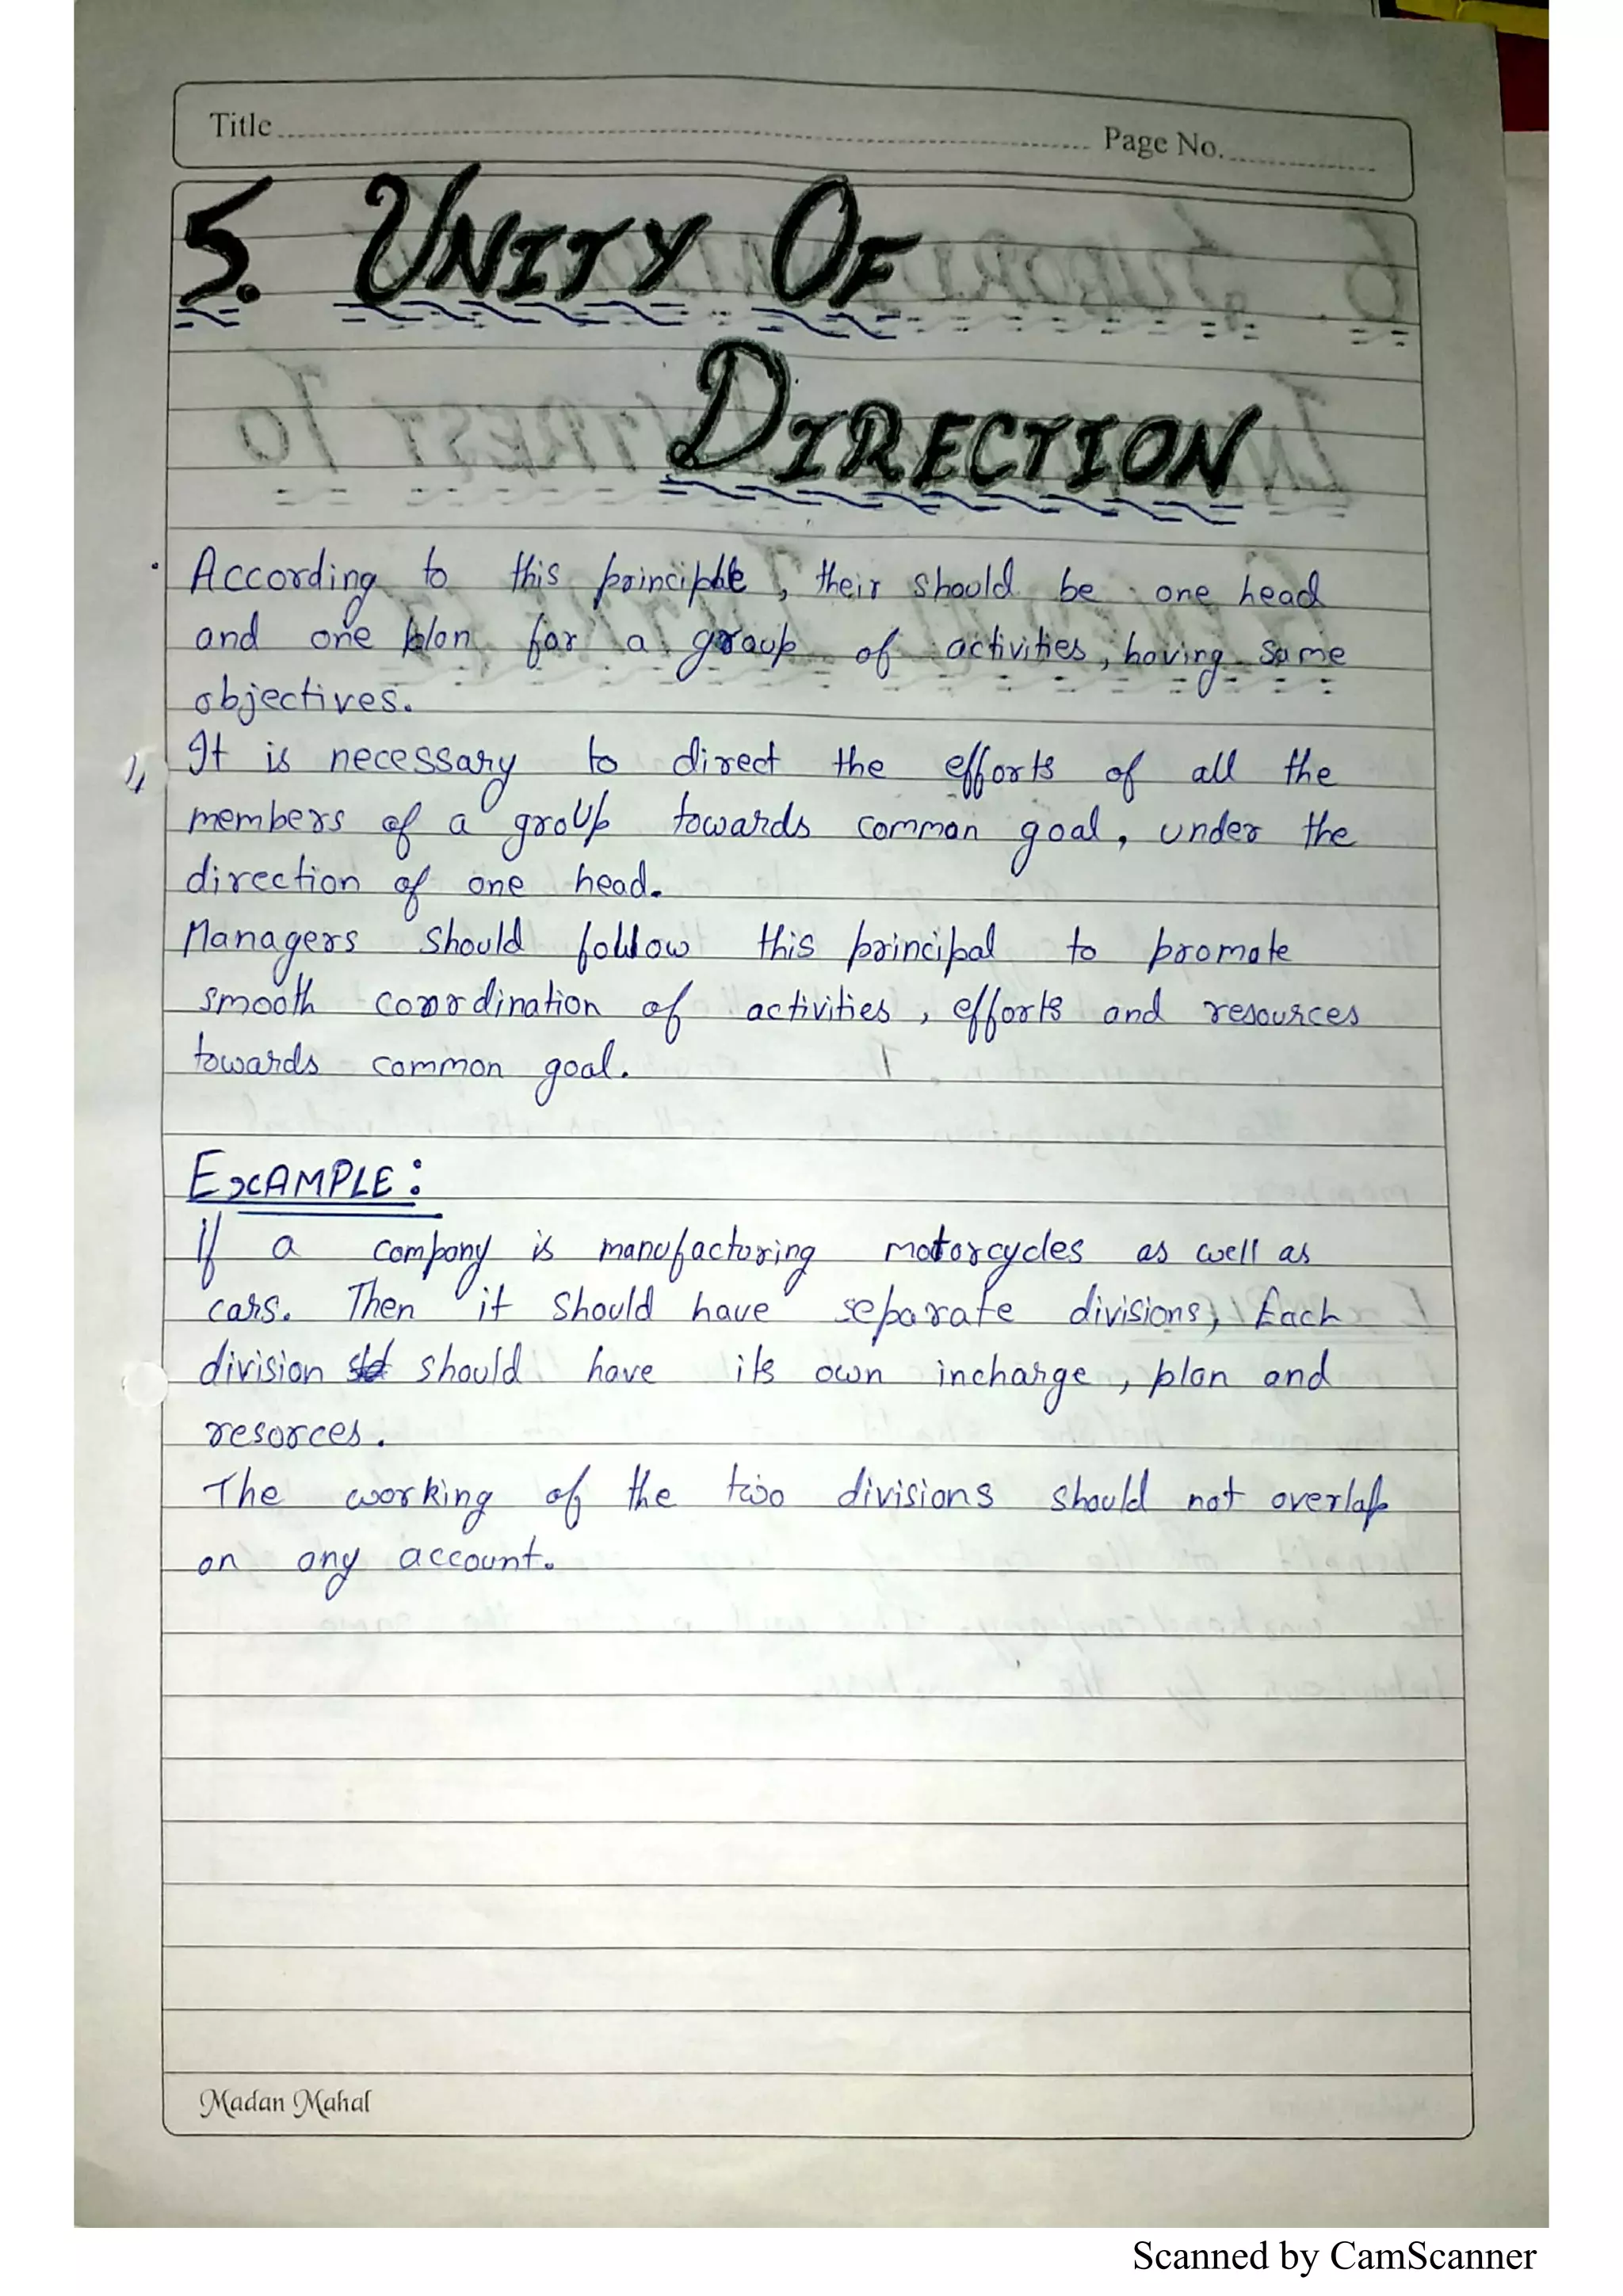 Title
Page No.
5. UNITY OF
DIRECTION
According to this principle, their should be one head
and one plan for a group of activities, having same
objectives.
It is necessary to direct the efforts of all the
members of a group towards common goal, under the
direction of one head.
Managers should follow this principal to promote
smooth coordination of activities, efforts and resources
towards common goal.
EXAMPLE:
If a company is manufacturing motorcycles as well as
cars. Then it should have separate divisions, Each
division should have its own incharge, plan and
resorces.
The working of the two divisions should not overlap
on any account.
Madan Mahal
Scanned by CamScanner